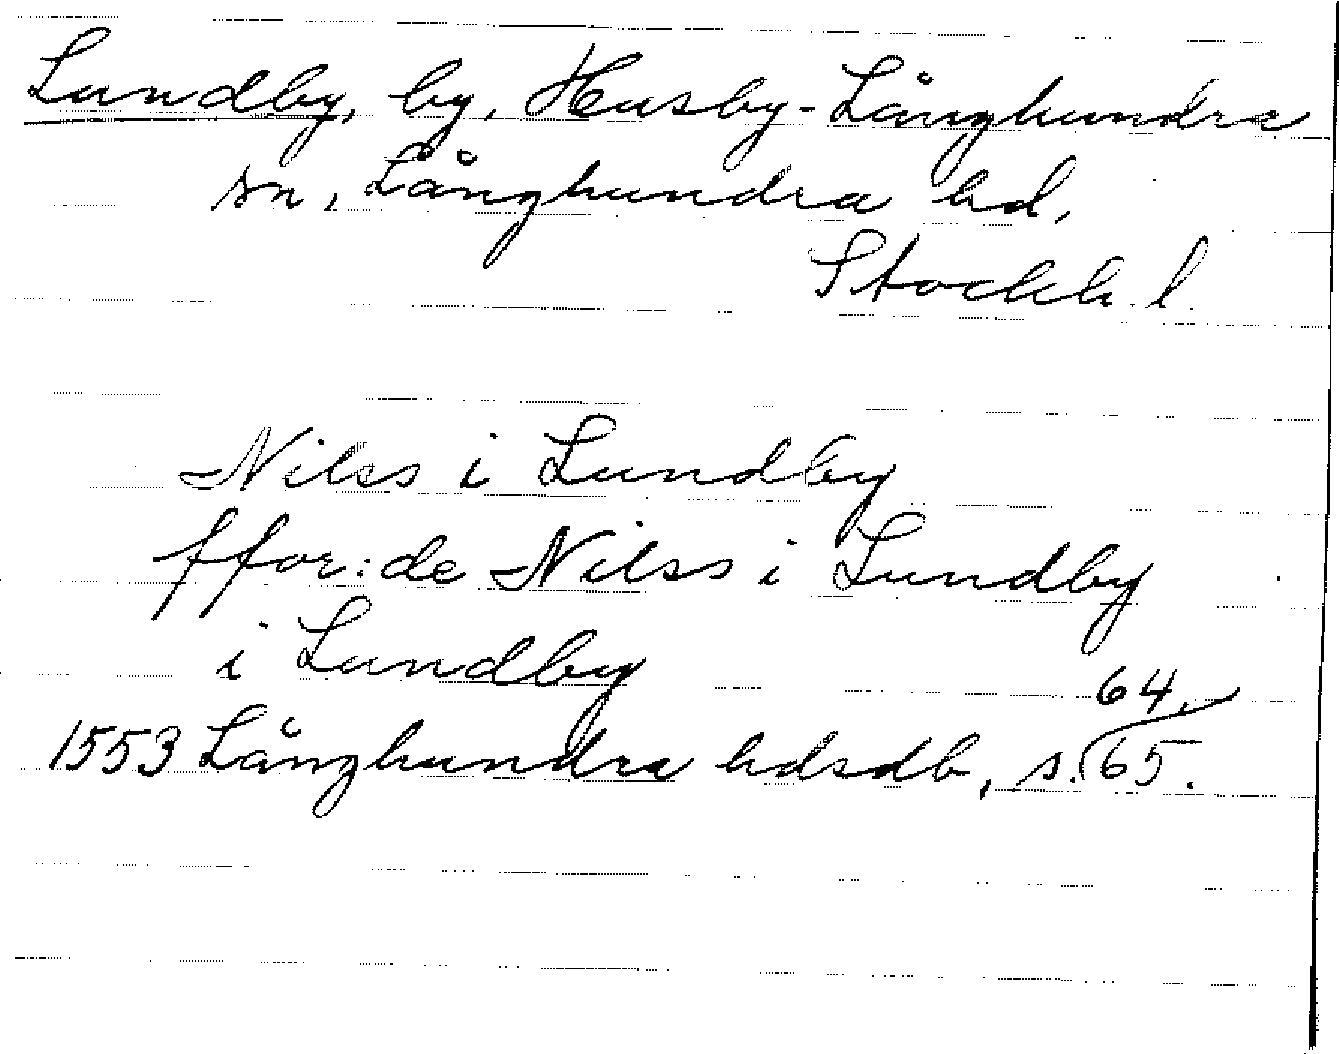 Lundby, by, Husby-Långhundra
sn, Långhundra hd,
Stockh. l.
Nilss i Lundby
ffor: de Nilss i Lundby
i Lundby
64,
1553 Långhundra hdsdb, s. 65.